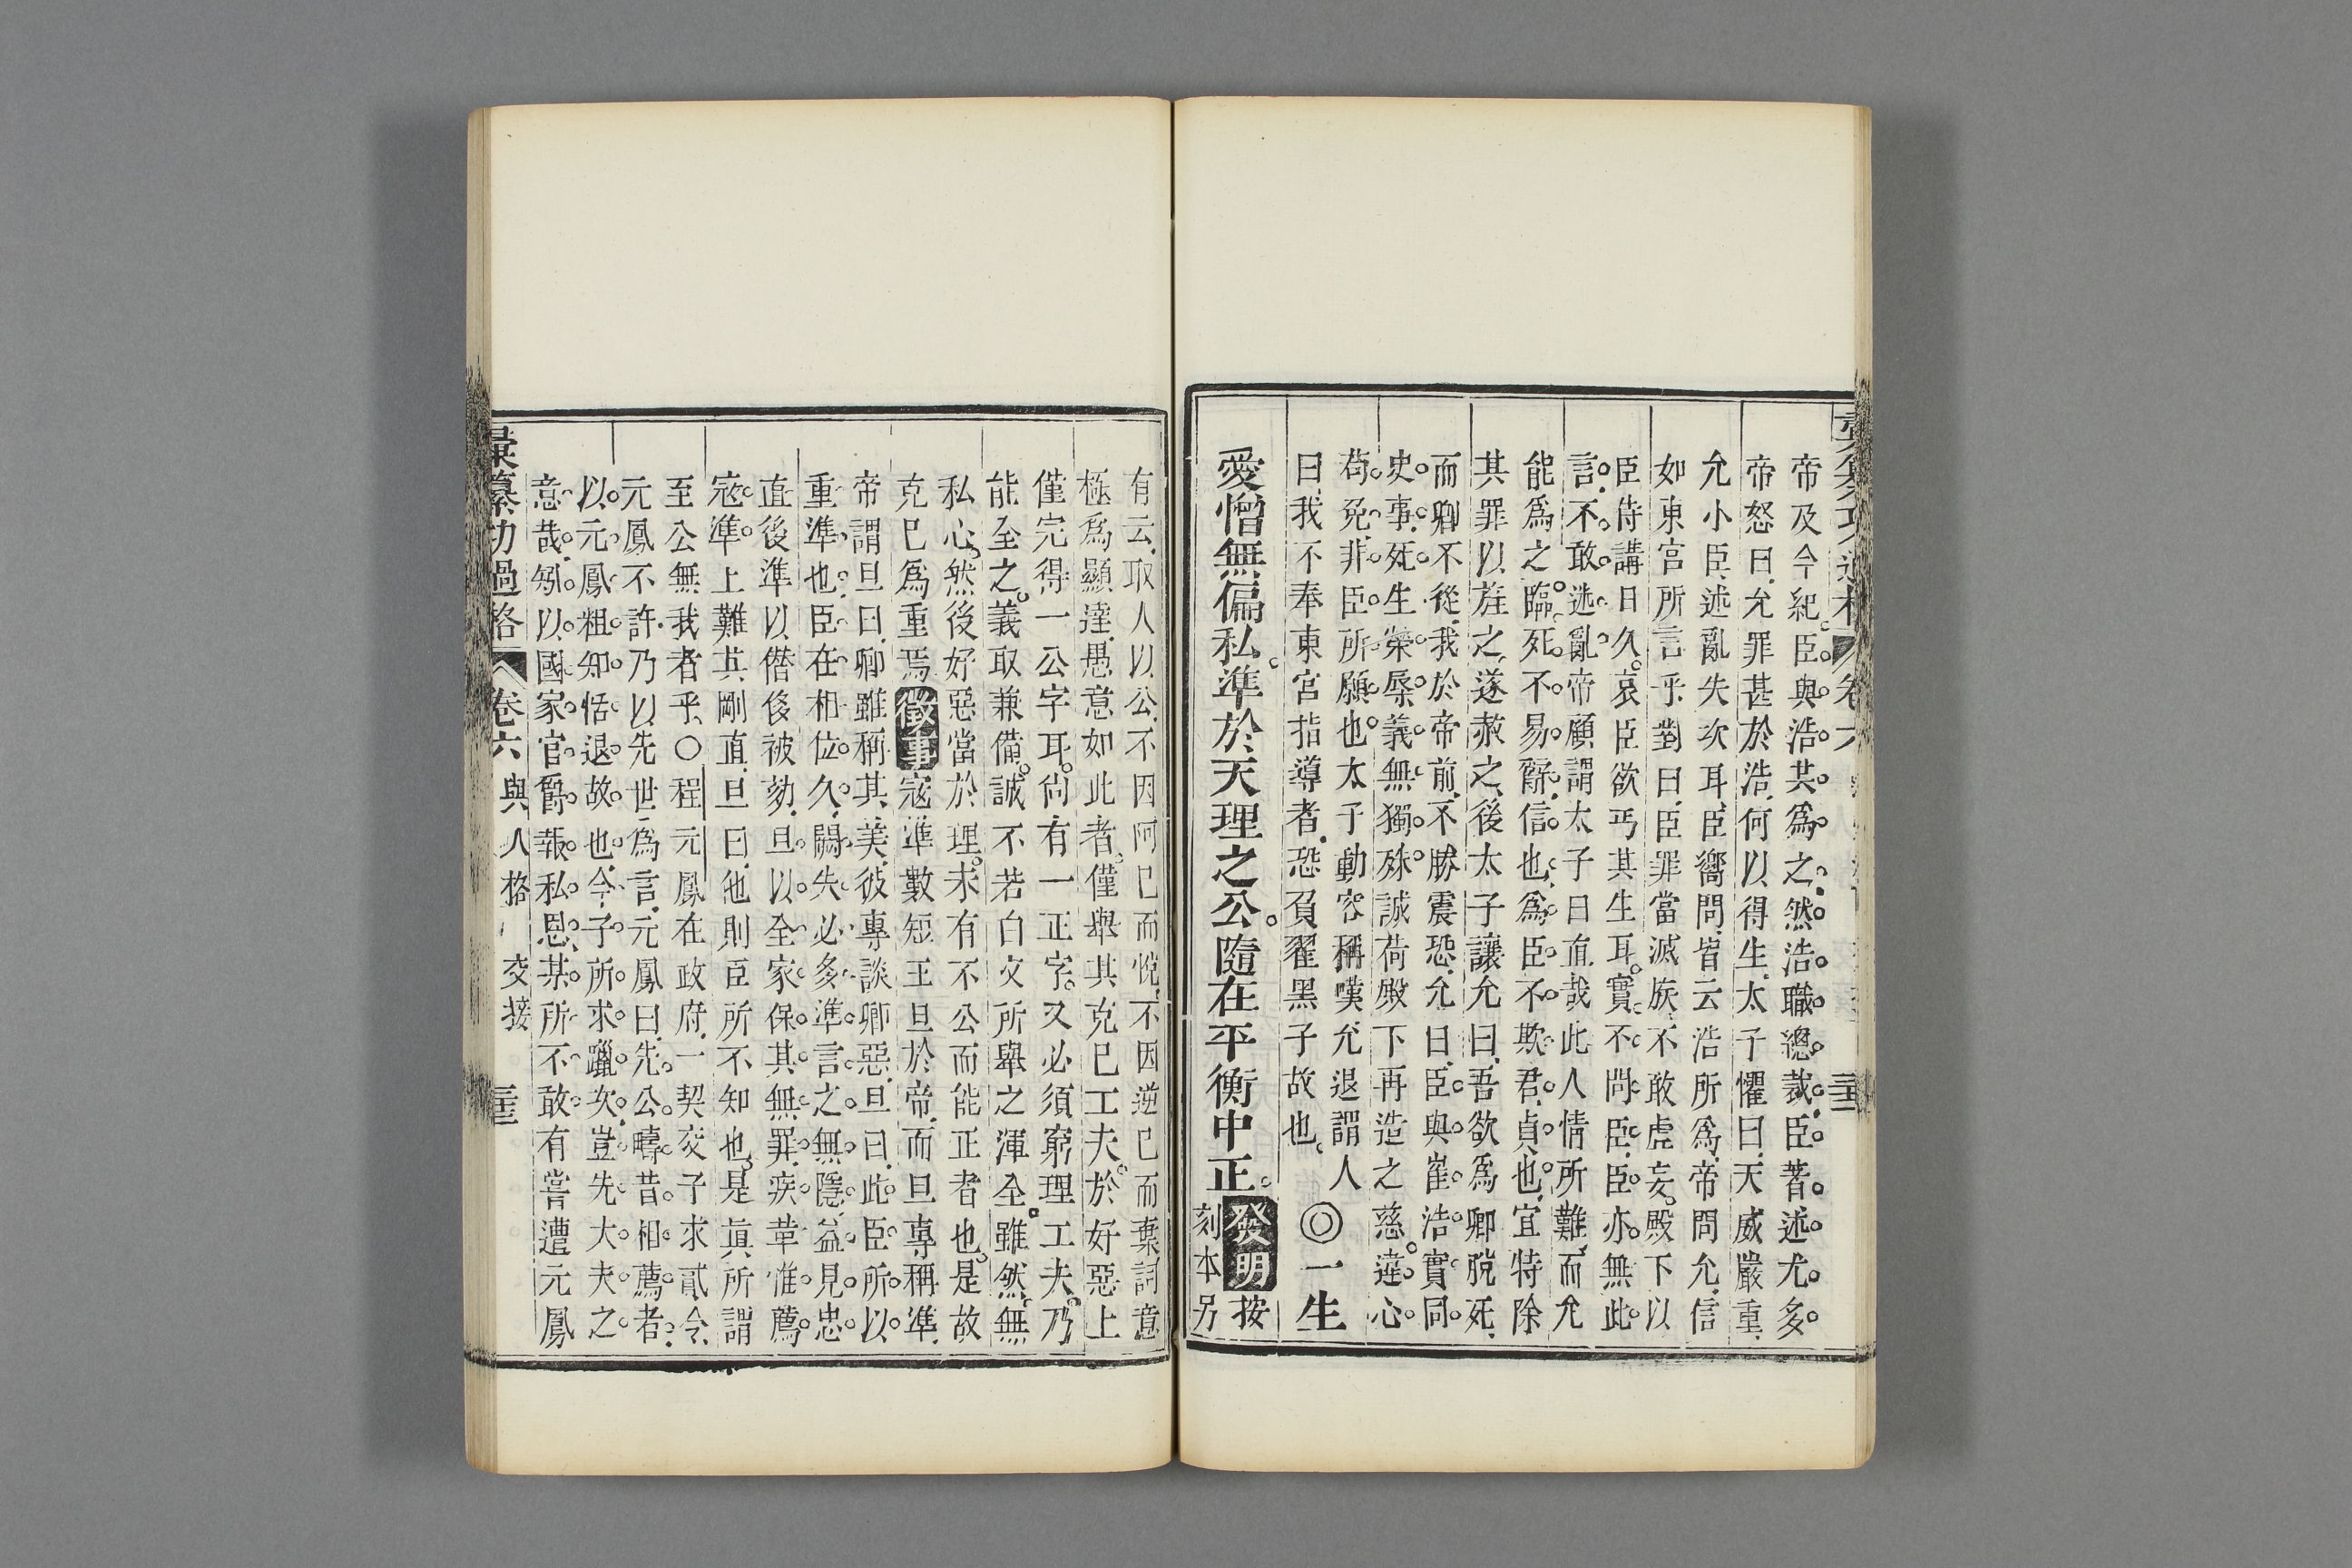 帝及今紀。臣與浩共爲之。然浩職總裁。臣著述尤多。
帝怒曰允罪甚於浩何以得生太子懼曰天威嚴重
允小臣述亂失次耳臣嚮問皆云浩所爲帝問允信
如東宮所言乎對曰臣罪當滅族不敢虛妄殿下以
臣侍講日久。哀臣欲丐其生耳。實不問臣。臣亦無此
言。不敢迷亂帝顧謂太子曰直哉此人情所難而允
能爲之。臨死不易辭。信也。爲臣不欺君。貞也宜特除
其罪以旌之遂赦之後太子讓允曰吾欲爲卿脫死
而卿不從我於帝前不勝震恐允曰臣與崔浩實同
史事。死生榮辱義無獨殊誠荷殿下再造之慈。違心
苟免。非臣所願也。太子動容稱嘆允退謂人
曰我不奉東宮指導者恐負翟黑子故也。◎一生
愛憎無偏私。準於天理之公。隨在平衡中正。發明按
刻本另
有云取人以公不因阿己而悅不因逆己而棄詞意
極爲顯達愚意如此者。僅舉其克己工夫。於好惡上
僅完得一公字耳。尚有一正字。又必須窮理工夫。乃
能全之。義取兼備。誠不若白文所舉之渾全。雖然無
私心。然後好惡當於理。未有不公而能正者也。是故
克己爲重焉徵事寇準數短王旦於帝而旦專稱準
帝謂旦曰卿雖稱其美彼專談卿惡旦曰此臣所以
重準也臣在相位久闕失必多準言之無隱益見忠
直後準以僭侈被劾旦以全家保其無罪疾革惟薦
寇準。上難其剛直旦曰他則臣所不知也是眞所謂
至公無我者乎〇程元鳳在政府一契交子求貳令
元鳳不許乃以先世爲言元鳳曰先公疇昔相薦者
以元鳳粗知恬退故也今子所求躐次豈先大夫之
意哉矧以國家官爵報私恩某所不敢有嘗遭元鳳
彙纂功過格 卷六 與人格 交接